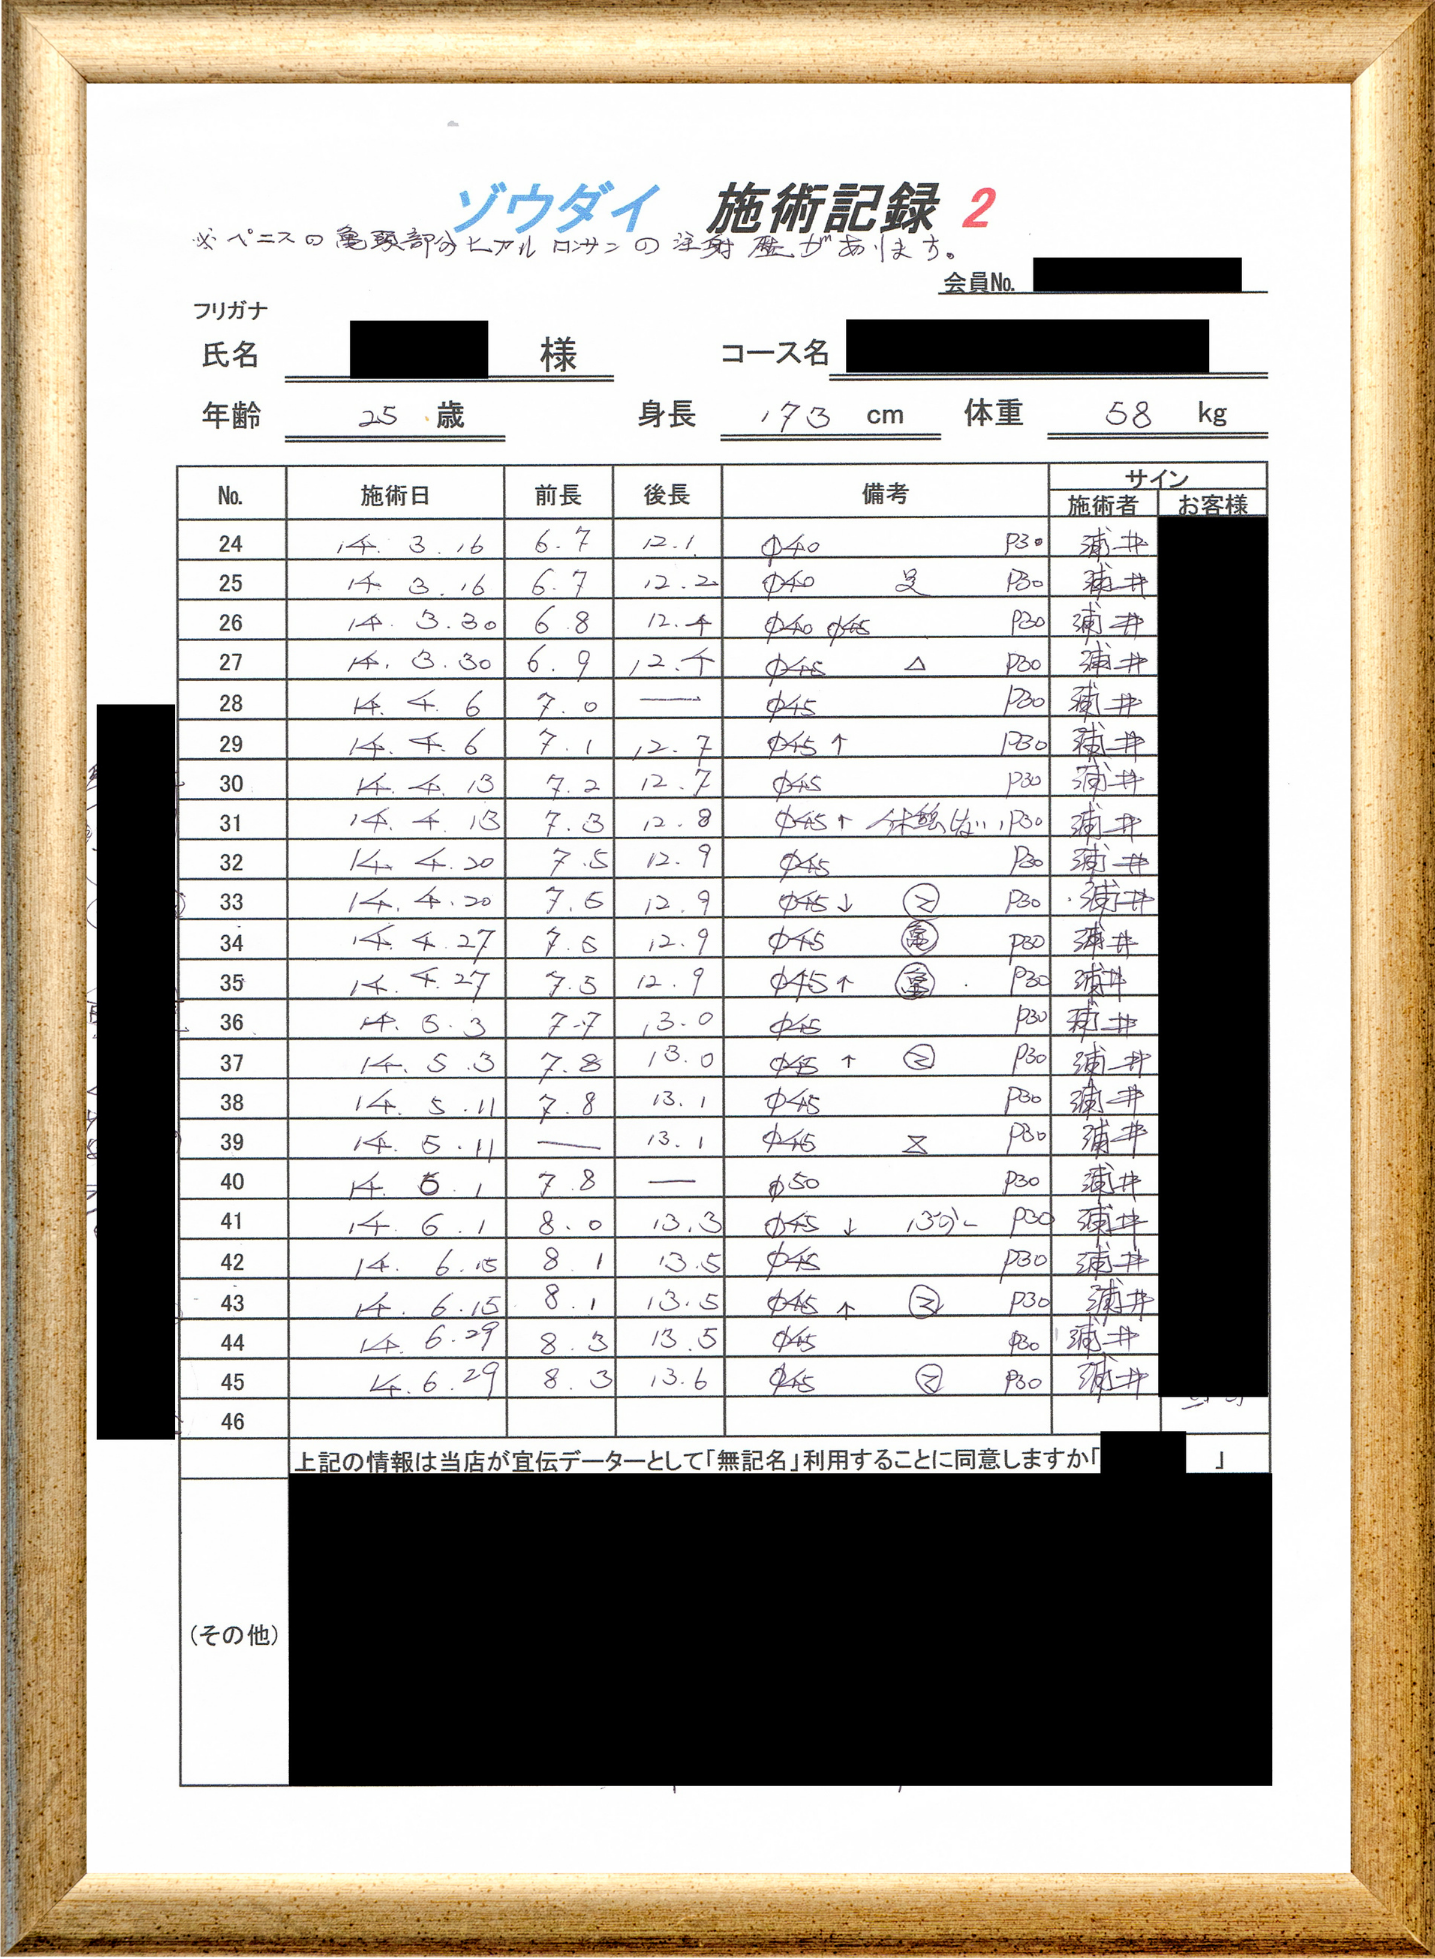 ゾウダイ 施術記録 2
※ペニスの亀頭部分ヒアルロンサンの注射歴があります。
会員No.
フリガナ
氏名 様 コース名
年齢 25 歳 身長 173 cm 体重 58 kg
No. 施術日 前長 後長 備考 サイン
施術者 お客様
24 14. 3. 16 6.7 12.1 φ40 P30 浦井
25 14 3. 16 6.7 12.2 φ40 足 P30 浦井
26 14. 3.30 6.8 12.4 φ40 φ45 P30 浦井
27 14. 3.30 6.9 12.4 φ45 △ P30 浦井
28 14. 4. 6 7.0 — φ45 P30 浦井
29 14. 4. 6 7.1 12.7 φ45↑ P30 浦井
30 14. 4. 13 7.2 12.7 φ45 P30 浦井
31 14. 4. 13 7.3 12.8 φ45↑ P30 浦井
32 14. 4.20 7.5 12.9 φ45 P30 浦井
33 14. 4.20 7.5 12.9 φ45↓ マ P30 浦井
34 14. 4.27 7.5 12.9 φ45 亀 P30 浦井
35 14. 4.27 7.5 12.9 φ45↑ 亀 P30 浦井
36 14. 5.3 7.7 13.0 φ45 P30 浦井
37 14. 5.3 7.8 13.0 φ45 ↑ マ P30 浦井
38 14. 5.11 7.8 13.1 φ45 P30 浦井
39 14. 5.11 — 13.1 φ45 P30 浦井
40 14. 6.1 7.8 — φ50 P30 浦井
41 14. 6.1 8.0 13.3 φ45 ↓ P30 浦井
42 14. 6.15 8.1 13.5 φ45 P30 浦井
43 14. 6.15 8.1 13.5 φ45 ↑ マ P30 浦井
44 14. 6.29 8.3 13.5 φ45 P30 浦井
45 14. 6.29 8.3 13.6 φ45 マ P30 浦井
46
上記の情報は当店が宣伝データーとして「無記名」利用することに同意しますか「 」
(その他)